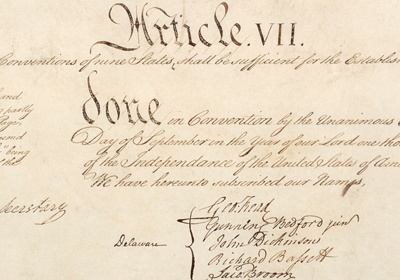 Article. VII.
Conventions of nine States, shall be sufficient for the Establis
done in Convention by the Unanimous
and
partly
Day of September in the Year of our Lord one thou
of the Independance of the United States of Ame
being
the
We have hereunto subscribed our Names,
Geo: Read
Gunning Bedford jun
Delaware
John Dickinson
Richard Bassett
Jaco: Broom